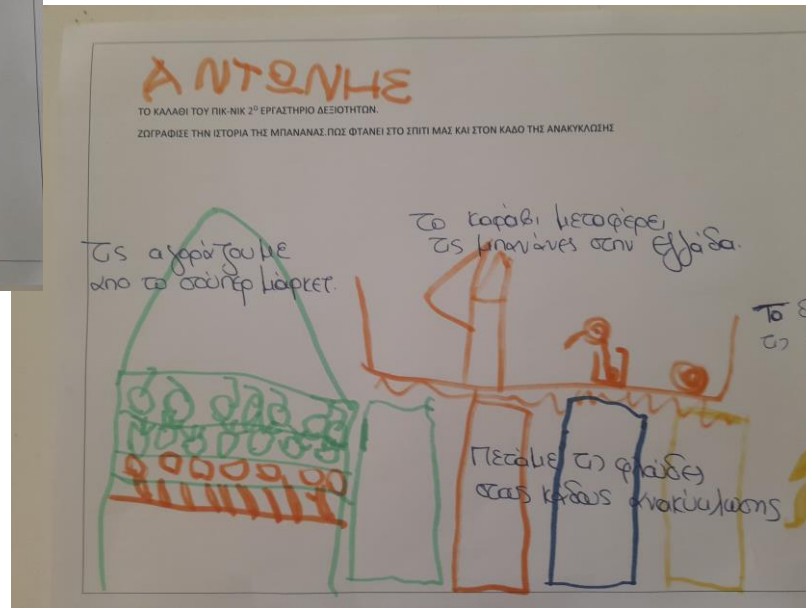 ΑΝΤΩΝΗΣ
ΤΟ ΚΑΛΑΘΙ ΤΟΥ ΠΙΚ-ΝΙΚ 2Ο ΕΡΓΑΣΤΗΡΙΟ ΔΕΞΙΟΤΗΤΩΝ.
ΖΩΓΡΑΦΙΣΕ ΤΗΝ ΙΣΤΟΡΙΑ ΤΗΣ ΜΠΑΝΑΝΑΣ.ΠΩΣ ΦΤΑΝΕΙ ΣΤΟ ΣΠΙΤΙ ΜΑΣ ΚΑΙ ΣΤΟΝ ΚΑΔΟ ΤΗΣ ΑΝΑΚΥΚΛΩΣΗΣ
Τις αγοράζουμε
από το σούπερ μάρκετ.
Το καράβι μεταφέρει
τις μπανάνες στην Ελλάδα.
Το
Πετάμε τις φλούδες
στους κάδους ανακύκλωσης